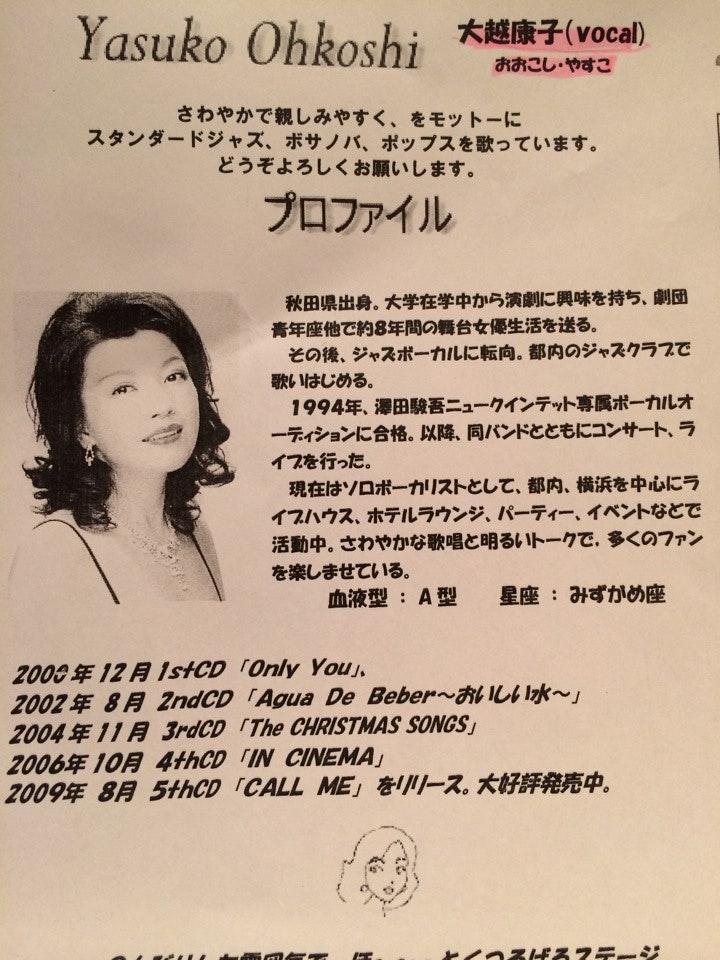 Yasuko Ohkoshi 大越康子(vocal)
おおこし・やすこ
さわやかで親しみやすく、をモットーに
スタンダードジャズ、ボサノバ、ポップスを歌っています。
どうぞよろしくお願いします。
プロファイル
秋田県出身。大学在学中から演劇に興味を持ち、劇団
青年座他で約8年間の舞台女優生活を送る。
その後、ジャズボーカルに転向。都内のジャズクラブで
歌いはじめる。
1994年、澤田駿吾ニュークインテット専属ボーカルオ
ーディションに合格。以降、同バンドとともにコンサート、ラ
イブを行った。
現在はソロボーカリストとして、都内、横浜を中心にラ
イブハウス、ホテルラウンジ、パーティー、イベントなどで
活動中。さわやかな歌唱と明るいトークで，多くのファン
を楽しませている。
血液型 : A型 星座 : みずがめ座
2000年12月 1stCD 「Only You」、
2002年 8月 2ndCD 「Agua De Beber～おいしい水～」
2004年11月 3rdCD 「The CHRISTMAS SONGS」
2006年10月 4thCD 「IN CINEMA」
2009年 8月 5thCD 「CALL ME」をリリース。大好評発売中。